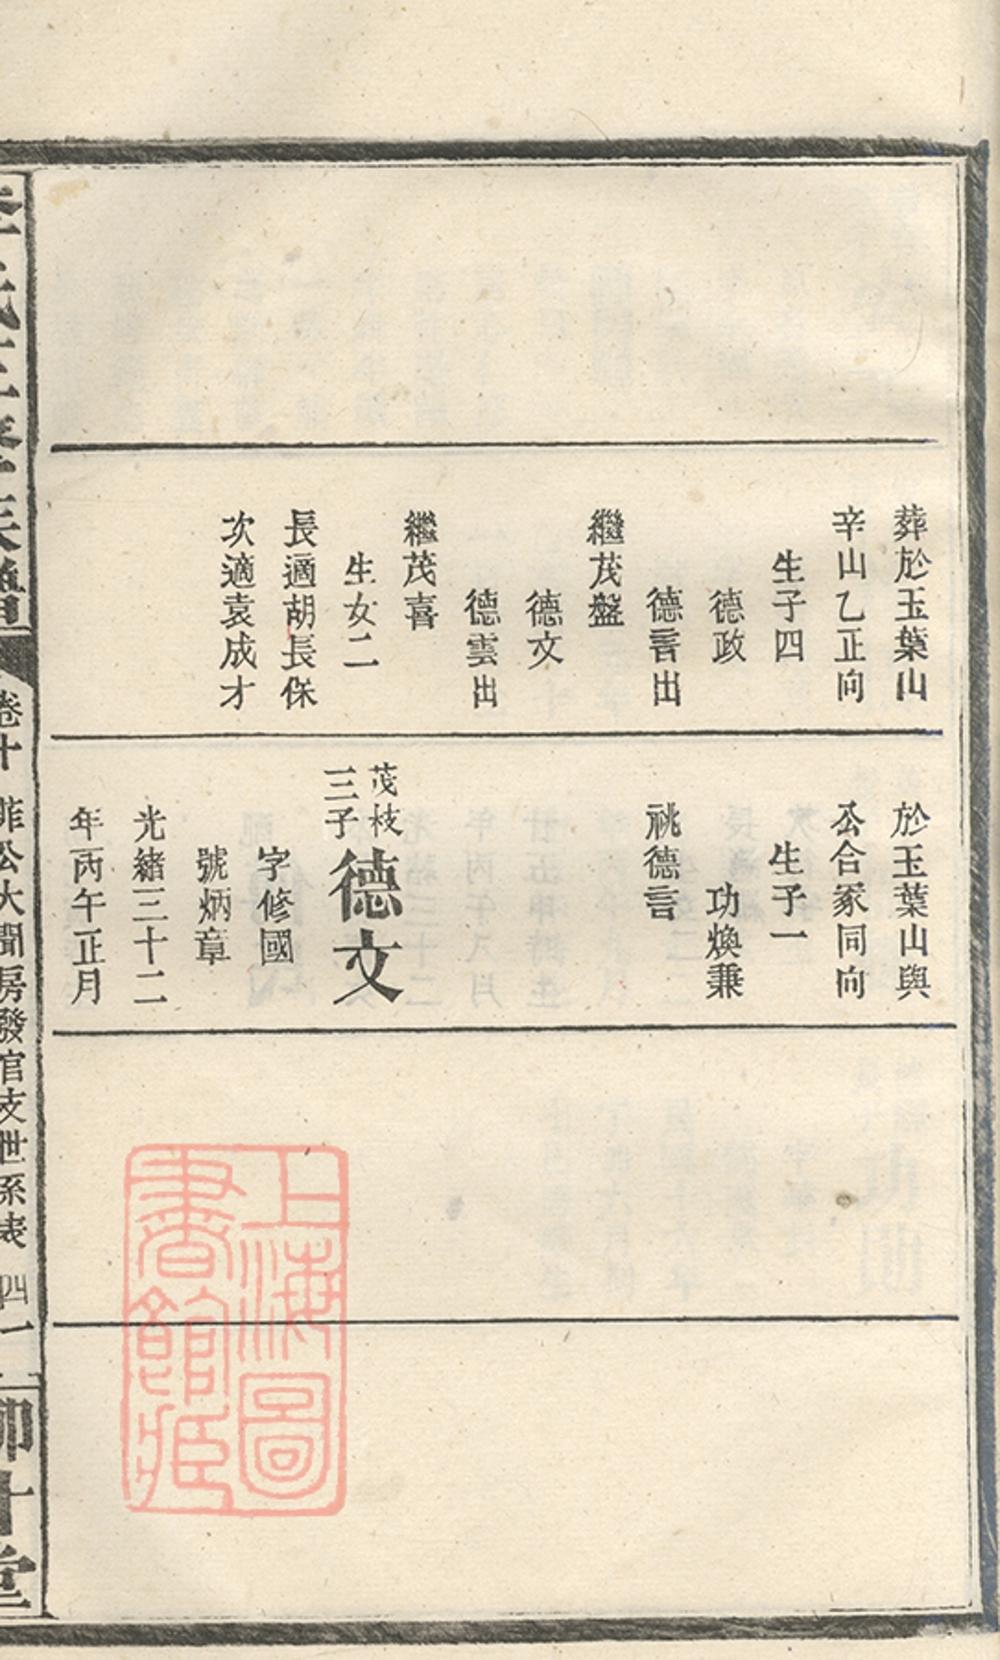 葬於玉葉山
辛山乙正向
生子四
德政
德言出
繼茂盤
德文
德雲出
繼茂喜
生女二
長適胡長保
次適袁成才
於玉葉山與
公合冢同向
生子一
功煥兼
祧德言
茂枝
三子
德文
字修國
號炳章
光緒三十二
年丙午正月
卷十
公大聞房發官支世系表
四一
上海圖
書館藏